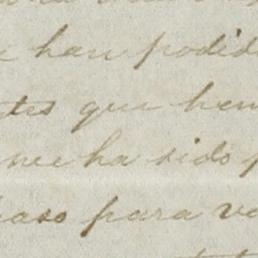 han podid
tes que hem
me ha sido p
paso para va